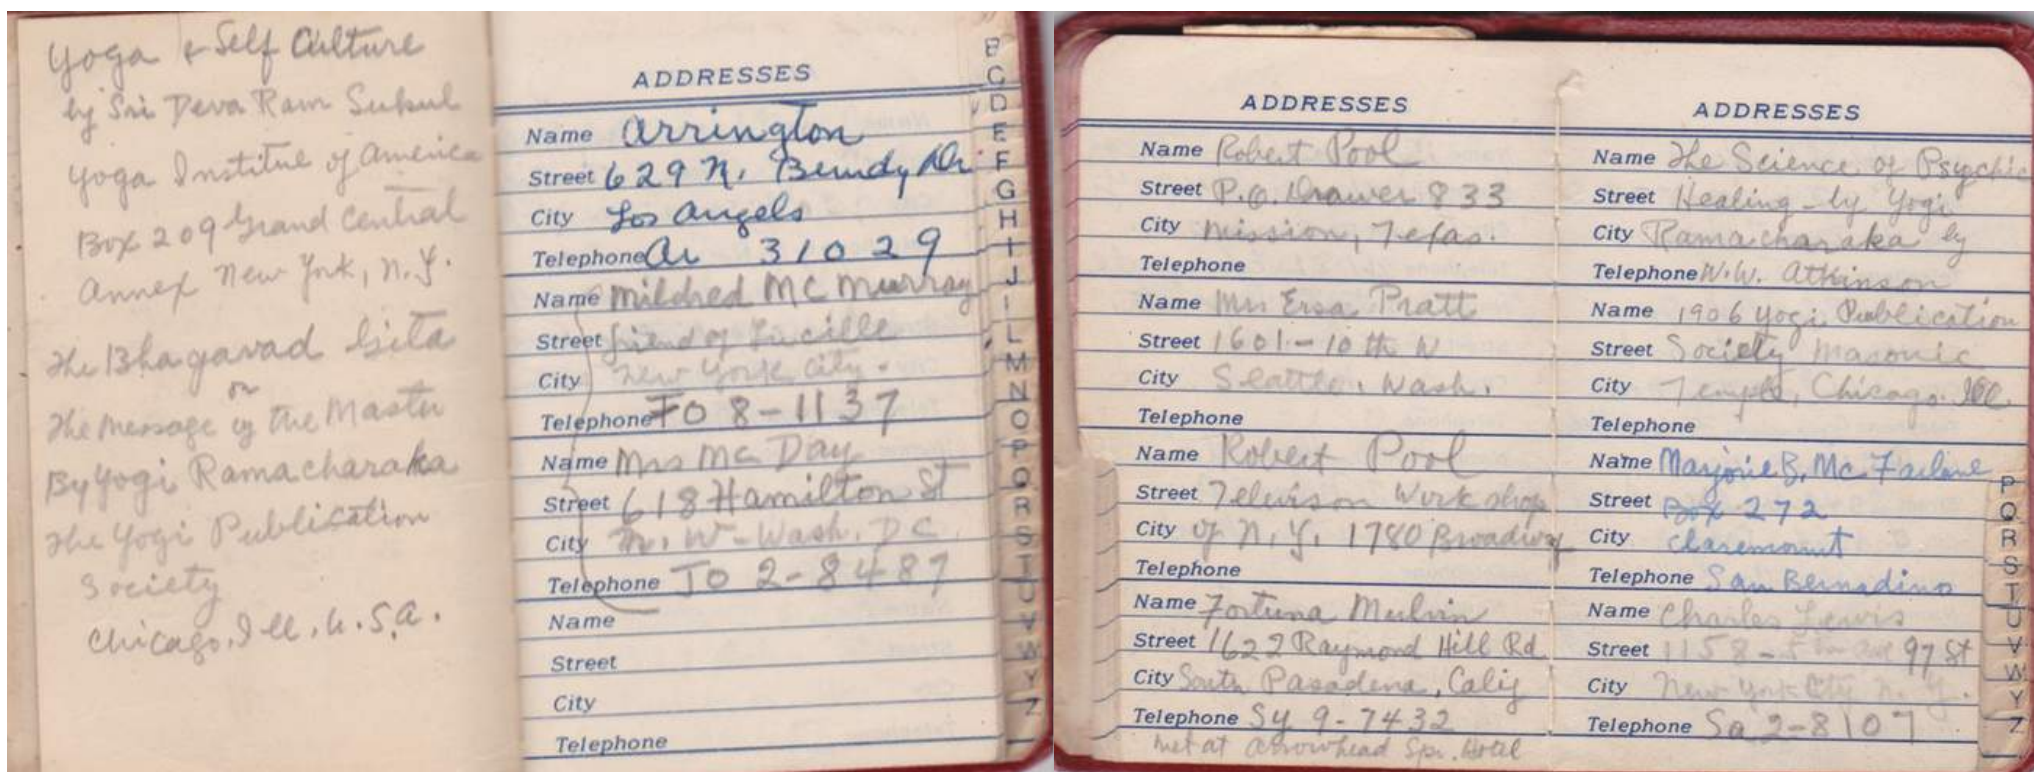 Yoga & Self Culture
by Sri Deva Ram Sukul
Yoga Institue of America
Box 209 Grand Central
Annex New York, N.Y.
The Bhagavad Gita
or
The Message of the Master
By Yogi Ramacharaka
The Yogi Publication
Society
Chicago. Ill. U.S.A.
ADDRESSES
Name Arrington
Street 629 N. Bundy Dr
City Los Angels
Telephone Ar 31029
Name Mildred McMurray
Street friend of Lucille
City New York City.
Telephone TO 8-1137
Name Mrs Mc Day
Street 618 Hamilton St
City N. W- Wash. D C
Telephone TO 2-8487
Name
Street
City
Telephone
B
C
D
E
F
G
H
I
J
L
M
N
O
P
Q
R
S
T
U
V
W
Y
Z
ADDRESSES
Name Robert Pool
Street P.O. Drawer 833
City Mission, Texas.
Telephone
Name Mrs Ersa Pratt
Street 1601-10th W
City Seattle, Wash.
Telephone
Name Robert Pool
Street Televison Work shop
City of N.Y. 1780 Broadway
Telephone
Name Fortuna
Street 1622 Raymond Hill Rd
City South Pasadena, Calif
Telephone Sy 9-7432
met at Arrowhead Spr. Hotel
ADDRESSES
Name The Science of Psychic
Street Healing - by Yogi
City Ramacharaka by
Telephone W.W. Atkinson
Name 1906 Yogi Publication
Street Society Masonic
City Temple, Chicago. Ill.
Telephone
Name Marjorie B. McFarlane
Street Box 272
City Claremount
Telephone San Bernadino
Name Charles Lewis
Street 1158 - 5th ave 97 St
City New York City N.Y.
Telephone Sa 2-8107
P
Q
R
S
T
U
V
W
Y
Z